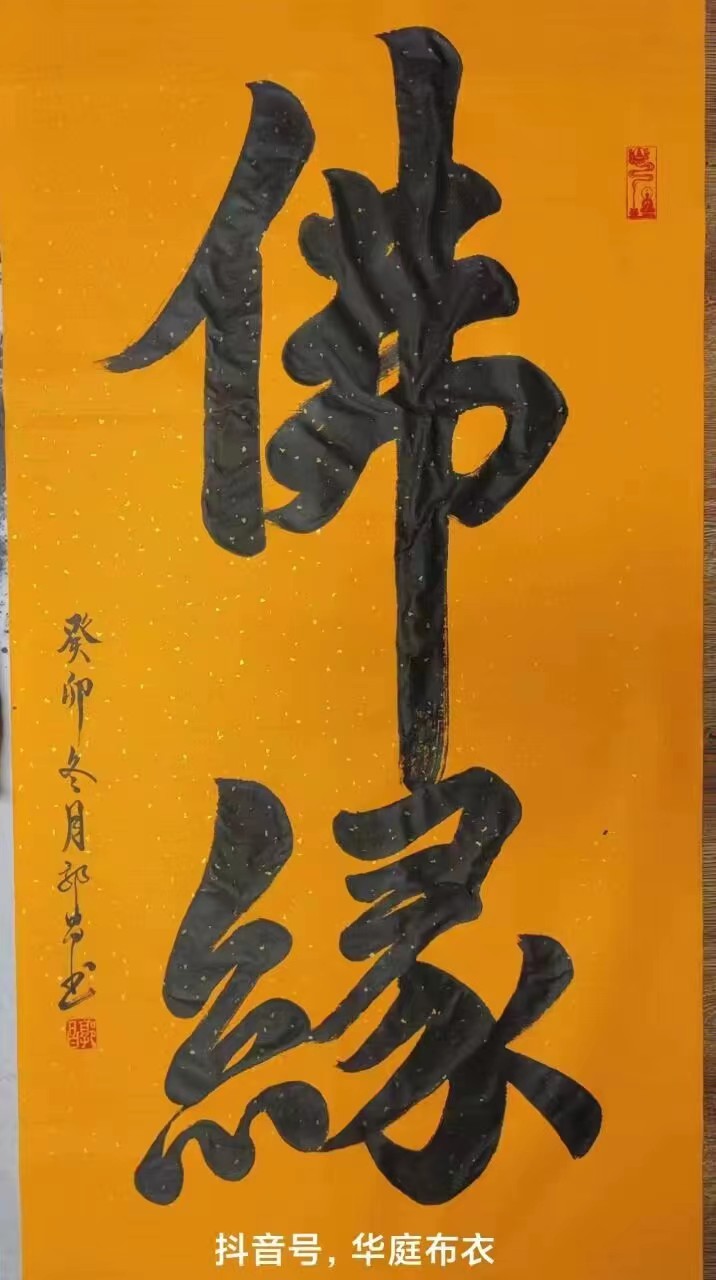 佛
緣
癸卯冬月郭昌书
抖音号，华庭布衣